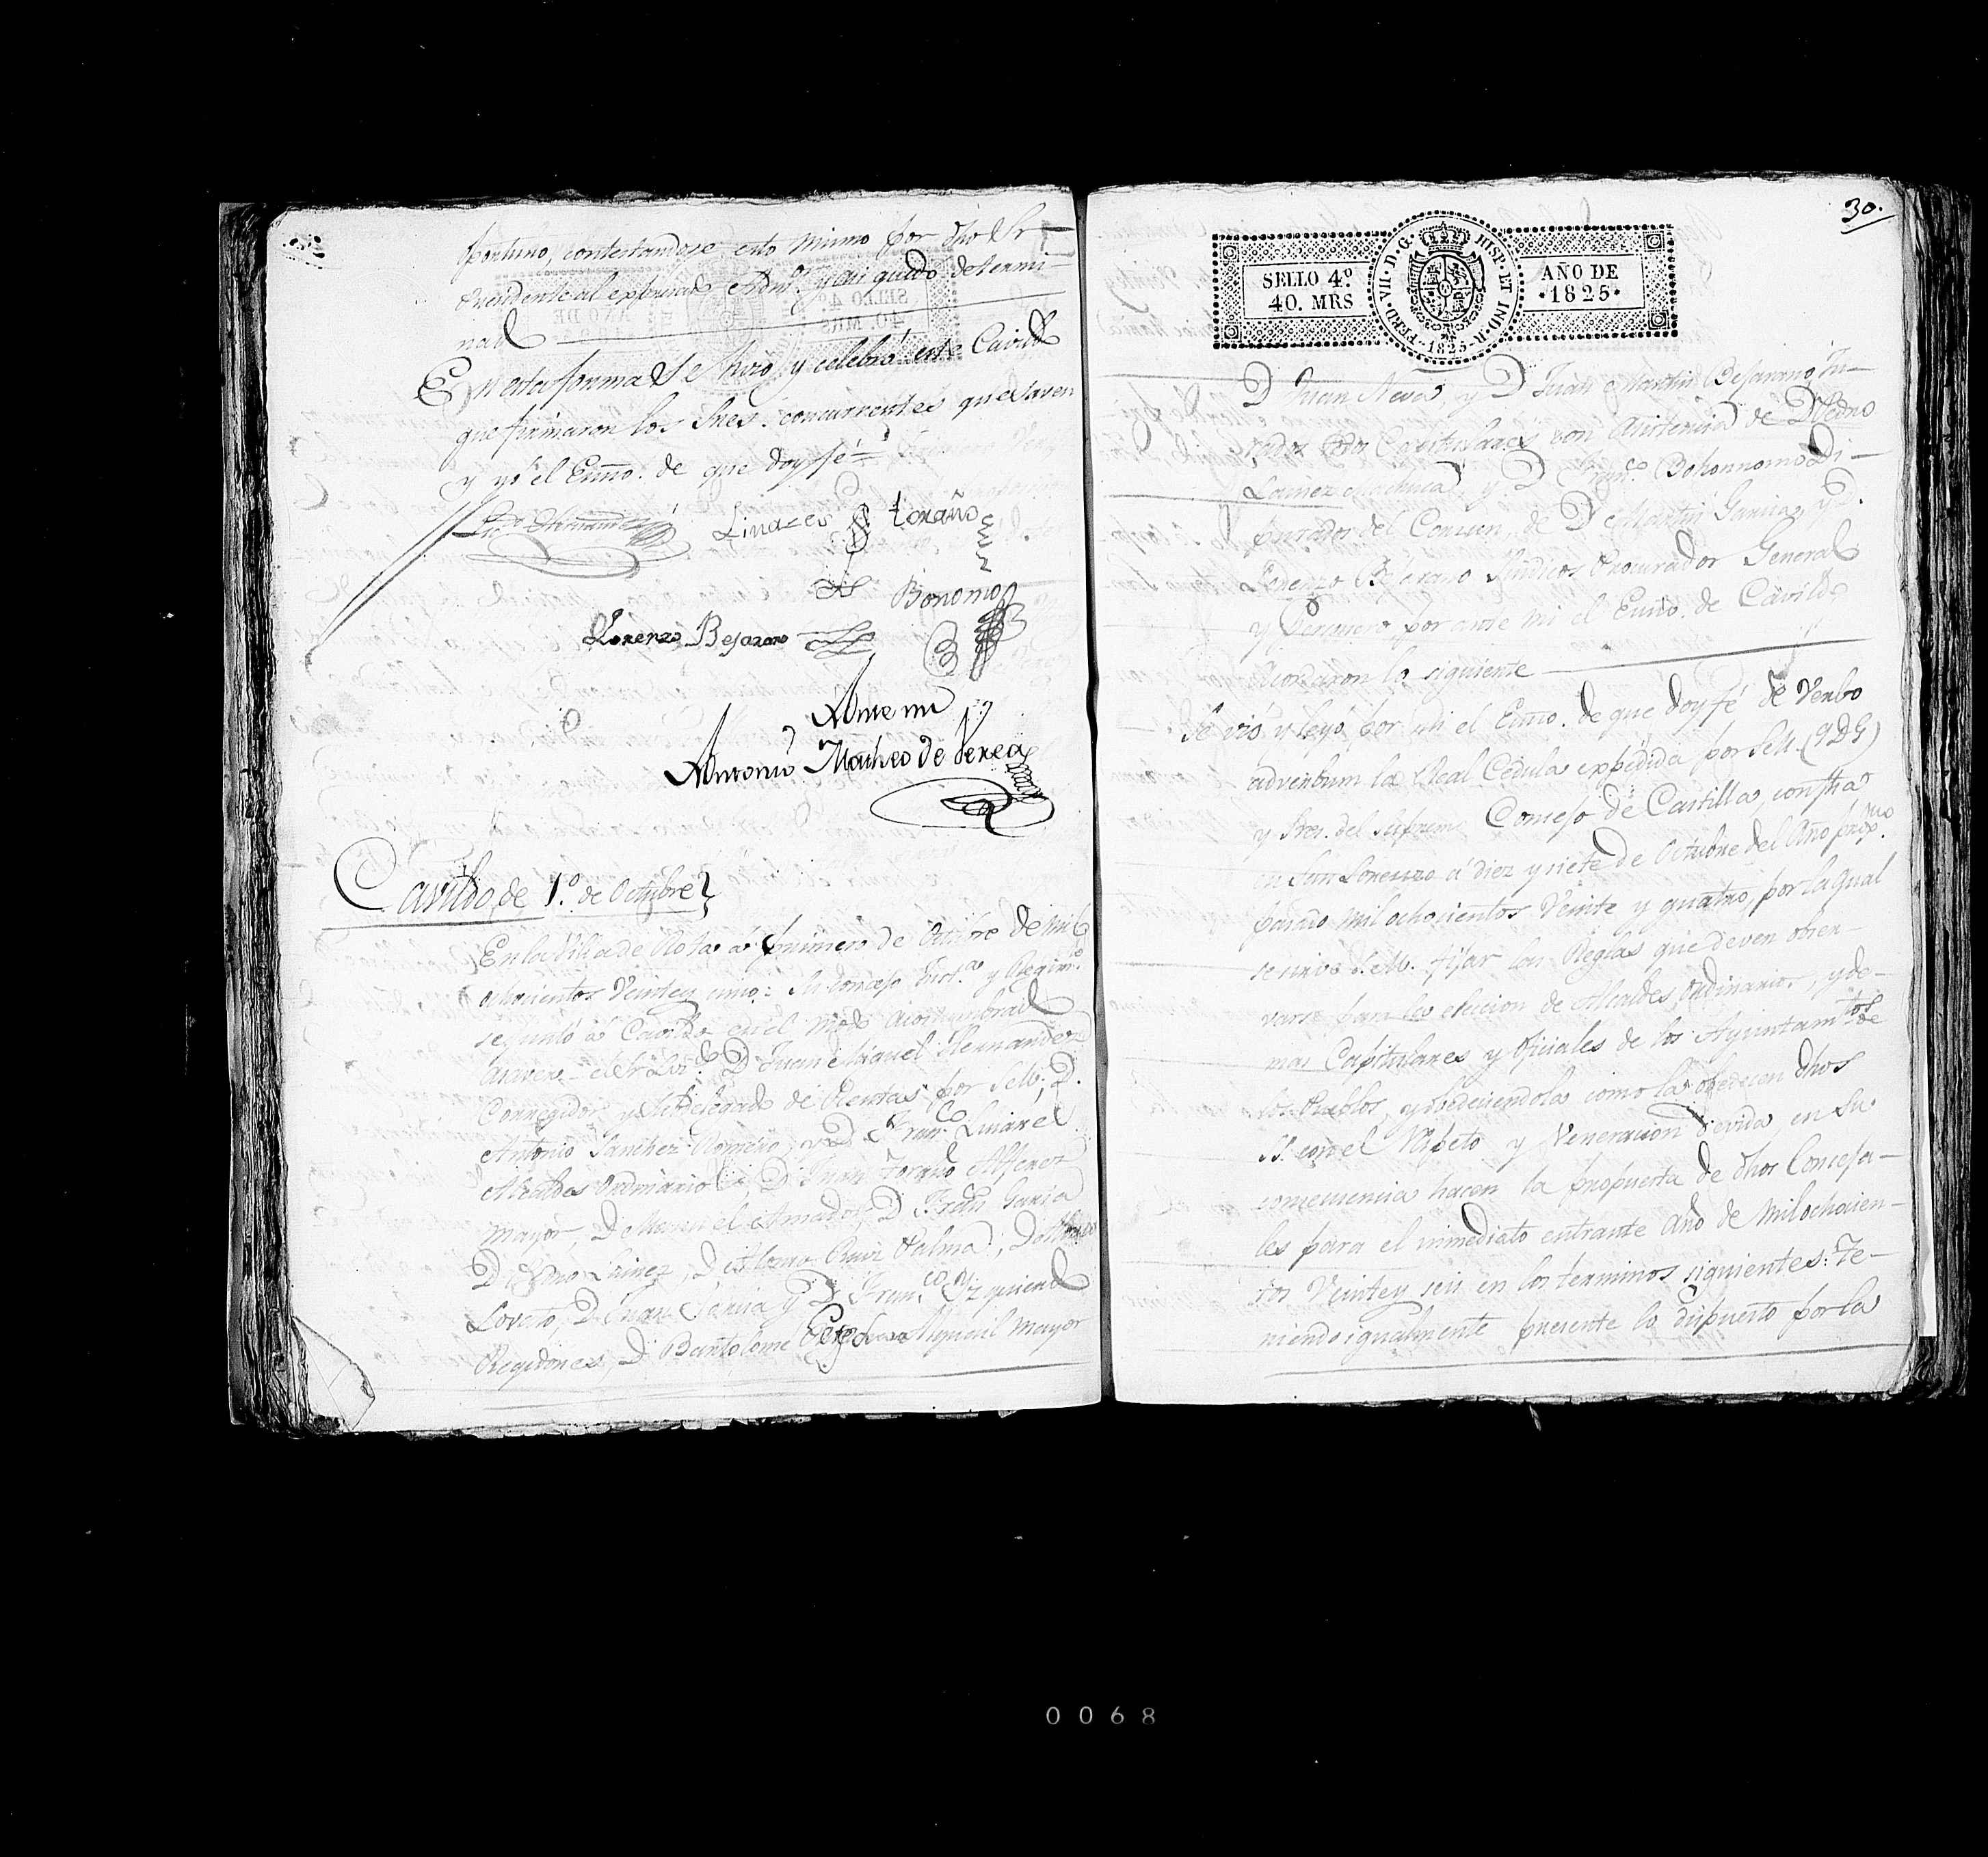 portuno, contestandose esto mismo por dho Sr
Presidente al expresado Admr. y asi quedo determi-
nad
En esta forma se hizo y celebró este Cavildo
que firmaron los Sres. concurrentes que saven
y yo el Essno. de que doy fé =
Licdo Hernandez Linares toraño
Bonomo
Lorenzo Bejarano
Ante mi
Antonio Matheo de Perea
Cavildo de 1.º de Octubre
En la Villa de Rota á primero de Octubre de mil
ochocientos Veinte y cinco: Su Concejo Just.ª y Regim.to
se juntó á Cavildo en el modo acostumbrado
á saver el Sr Lic.do D Juan Miguel Hernandez
Corregidor y Subdelegado de Rentas por S.M., D.
Antonio Sanchez Romero, y D Fran.co Linares
Alcaldes Ordinarios, D Juan Toraño Alferez
Mayor, D Manuel Amador, D Fran Garcia
D Pedro Lainez, D Alonso Ruiz Palma, D
Lovato, D Juan Garcia y D Fran.co Yzquierdo
Regidores, D Bartolome Alguacil mayor
30.
SELLO 4.º
40. MRS
FERD. VII. D. G. HISP. ET IND. R. 1825
AÑO DE
1825
D Juan Neva, y D Juan Martin Bejarano, Ju-
rados todos Capitulares con asistencia de D Pedro
Lainez Machuca, y D Fran.co Bohonnomo Di-
putados del Comun, de D Martin Garcia, y D.
Lorenzo Bejarano Sindicos Procurador General
y Personero por ante mi el Essno. de Cavildo
Acordaron lo siguiente
Se vió y leyó por mi el Essno. de que doy fé de Verbo
adverbum la Real Cedula expedida por S.M. (q D G)
y Sres. del supremo Consejo de Castilla, con fha
en San Lorenzo á diez y siete de Octubre del Año proxmo
pasado mil ochocientos Veinte y quatro, por la qual
se sirve S.M. fijar las Reglas que deven obser-
varse para la eleccion de Alcaldes Ordinarios, y de-
mas Capitulares y Oficiales de los Ayuntamtos de
los Pueblos, y obedeciendola como la obedecen dhos
SS. con el Respeto y Veneracion devida en su
consecuencia hacen la propuesta de dhos Conceja-
les para el inmediato entrante año de Milochocien-
tos Veinte y seis en los terminos siguientes: Te-
niendo igualmente presente lo dispuesto por la
0068